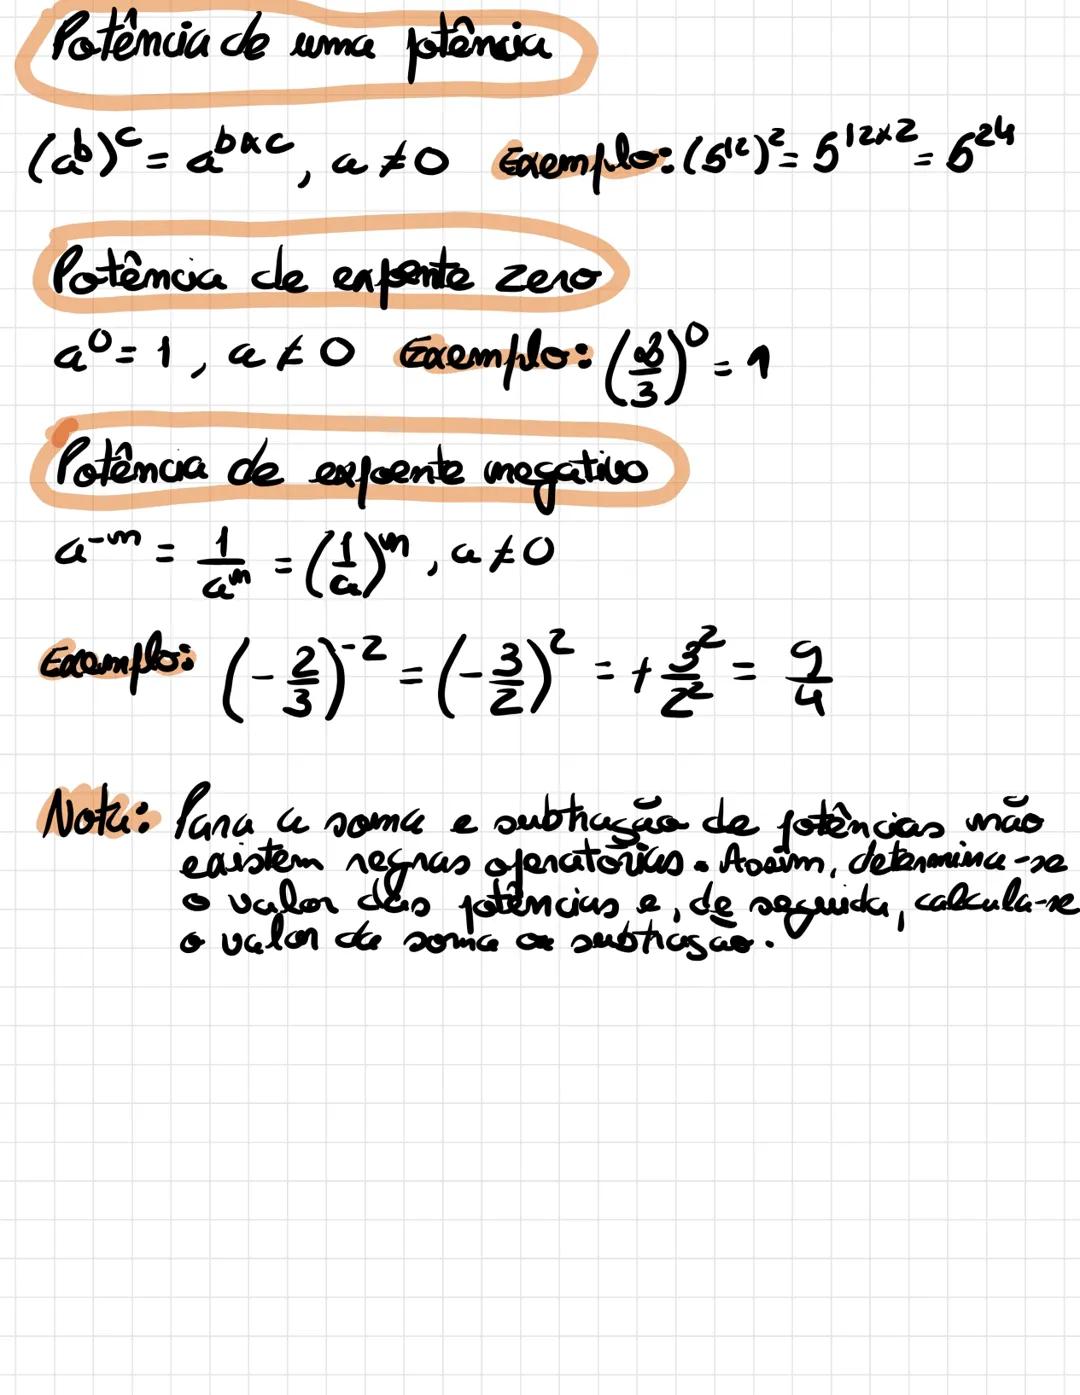 Potência de uma potência
(a^b)^c = a^{b×c}, a ≠ 0 Exemplo: (5^{12})^2 = 5^{12×2} = 5^{24}
Potência de expente zero
a^0 = 1, a ≠ 0 Exemplo: (8/3)^0 = 1
Potência de expoente negativo
a^{-n} = 1/a^n = (1/a)^n, a ≠ 0
Exemplo: (-2/3)^{-2} = (-3/2)^2 = +3^2/2^2 = 9/4
Nota: Para a soma e subtração de potências não
existem regras operatórias. Assim, determina-se
o valor das potências e, de seguida, calcula-se
o valor da soma ou subtração.